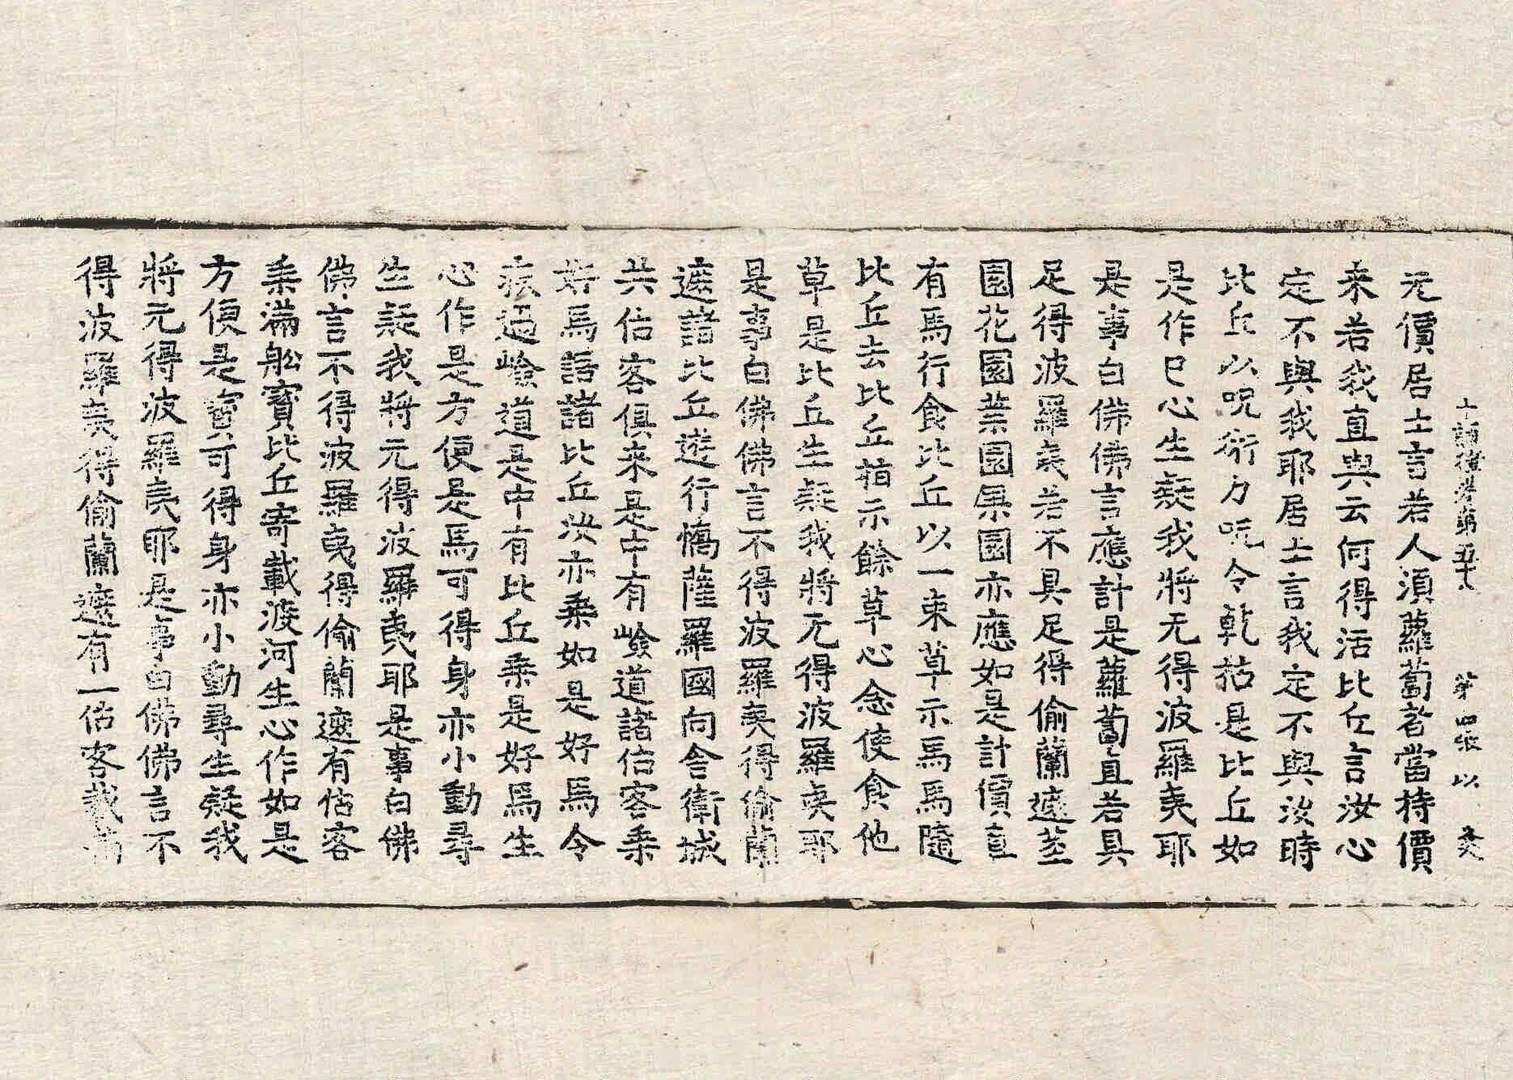 十誦律卷第五十八 第四張 以
无價居士言若人須蘿蔔者當持價
来若我直與云何得活比丘言汝心
定不與我耶居士言我定不與汝時
比丘以呪術力呪令乾枯是比丘如
是作已心生疑我將无得波羅夷耶
是事白佛佛言應計是蘿蔔直若具
足得波羅夷若不具足得偷蘭遮莖
園花園葉園果園亦應如是計價直
有馬行食比丘以一束草示馬馬隨
比丘去比丘指示餘草心念使食他
草是比丘生疑我將无得波羅夷耶
是事白佛佛言不得波羅夷得偷蘭
遮諸比丘遊行憍薩羅國向舍衛城
共估客俱来是中有嶮道諸估客乘
好馬語諸比丘汝亦乘如是好馬令
疾過嶮道是中有比丘乘是好馬生
心作是方便是馬可得身亦小動尋
生疑我將元得波羅夷耶是事白佛
佛言不得波羅夷得偷蘭遮有估客
乘滿舩寶比丘寄載渡河生心作如是
方便是寶可得身亦小動尋生疑我
將元得波羅夷耶是事白佛佛言不
得波羅夷得偷蘭遮有一估客載滿